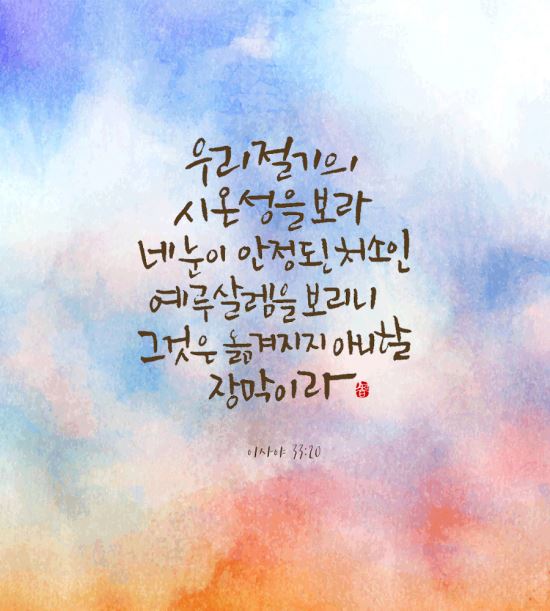 우리 절기의
시온성을 보라
네 눈이 안정된 처소인
예루살렘을 보리니
그것은 옮겨지지 아니할
장막이라
이사야 33:20